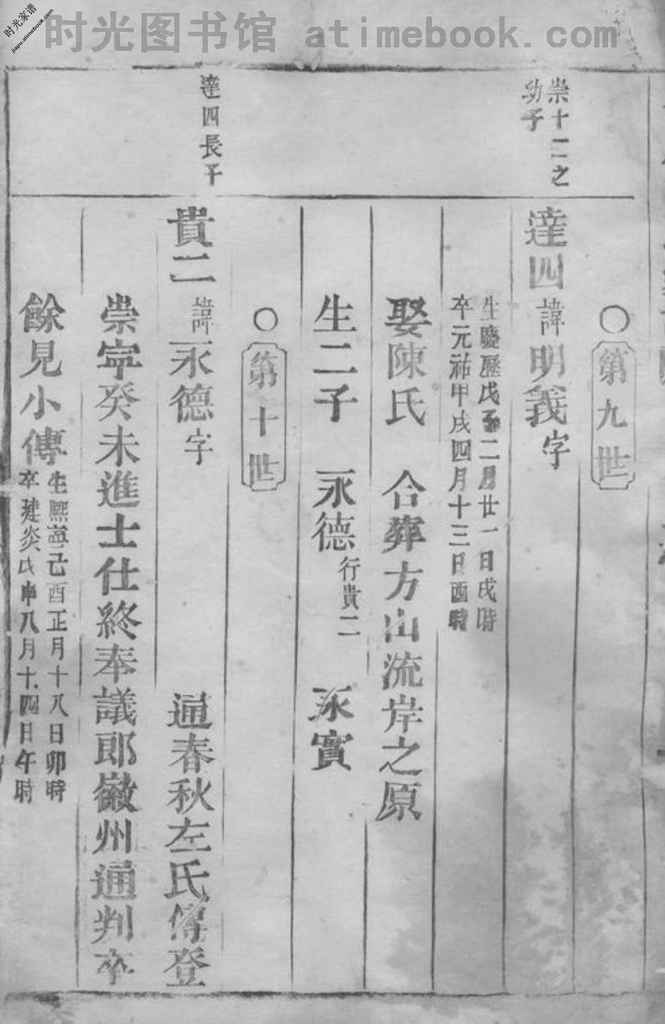 时光图书馆 atimebook.com
时光家谱
○第九世
崇十二之
幼子
達四諱明義字
生慶歷戊子二月廿一日戌時
卒元祐甲戌四月十三日酉時
娶陳氏 合葬方山流岸之原
生二子 永德行貴二 永實
○第十世
達四長子
貴二諱永德字 通春秋左氏傳登
崇寧癸未進士仕終奉議郎徽州通判卒
餘見小傳
生熙寧己酉正月十八日卯時
卒建炎戊申八月十四日午時